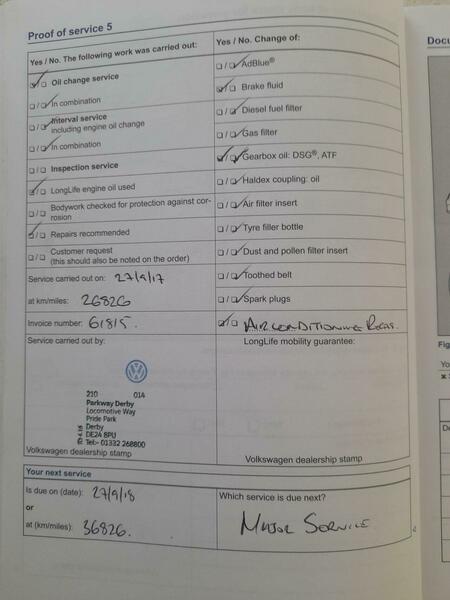 Proof of service 5
Yes / No. The following work was carried out:
Oil change service
In combination
Interval service
including engine oil change
In combination
Inspection service
LongLife engine oil used
Bodywork checked for protection against cor-
rosion
Repairs recommended
Customer request
(this should also be noted on the order)
Service carried out on: 27/9/17
at km/miles: 26826
Invoice number: 61815.
Service carried out by:
210 014
Parkway Derby
Locomotive Way
Pride Park
Derby
DE24 8PU
Tel:- 01332 268800
Volkswagen dealership stamp
Yes / No. Change of:
AdBlue®
Brake fluid
Diesel fuel filter
Gas filter
Gearbox oil: DSG®, ATF
Haldex coupling: oil
Air filter insert
Tyre filler bottle
Dust and pollen filter insert
Toothed belt
Spark plugs
AIRCONDITIONING
LongLife mobility guarantee:
Volkswagen dealership stamp
Your next service
Is due on (date): 27/9/18
or
at (km/miles): 36826.
Which service is due next?
MAJOR SERVICE
Docu
Fig
Yo